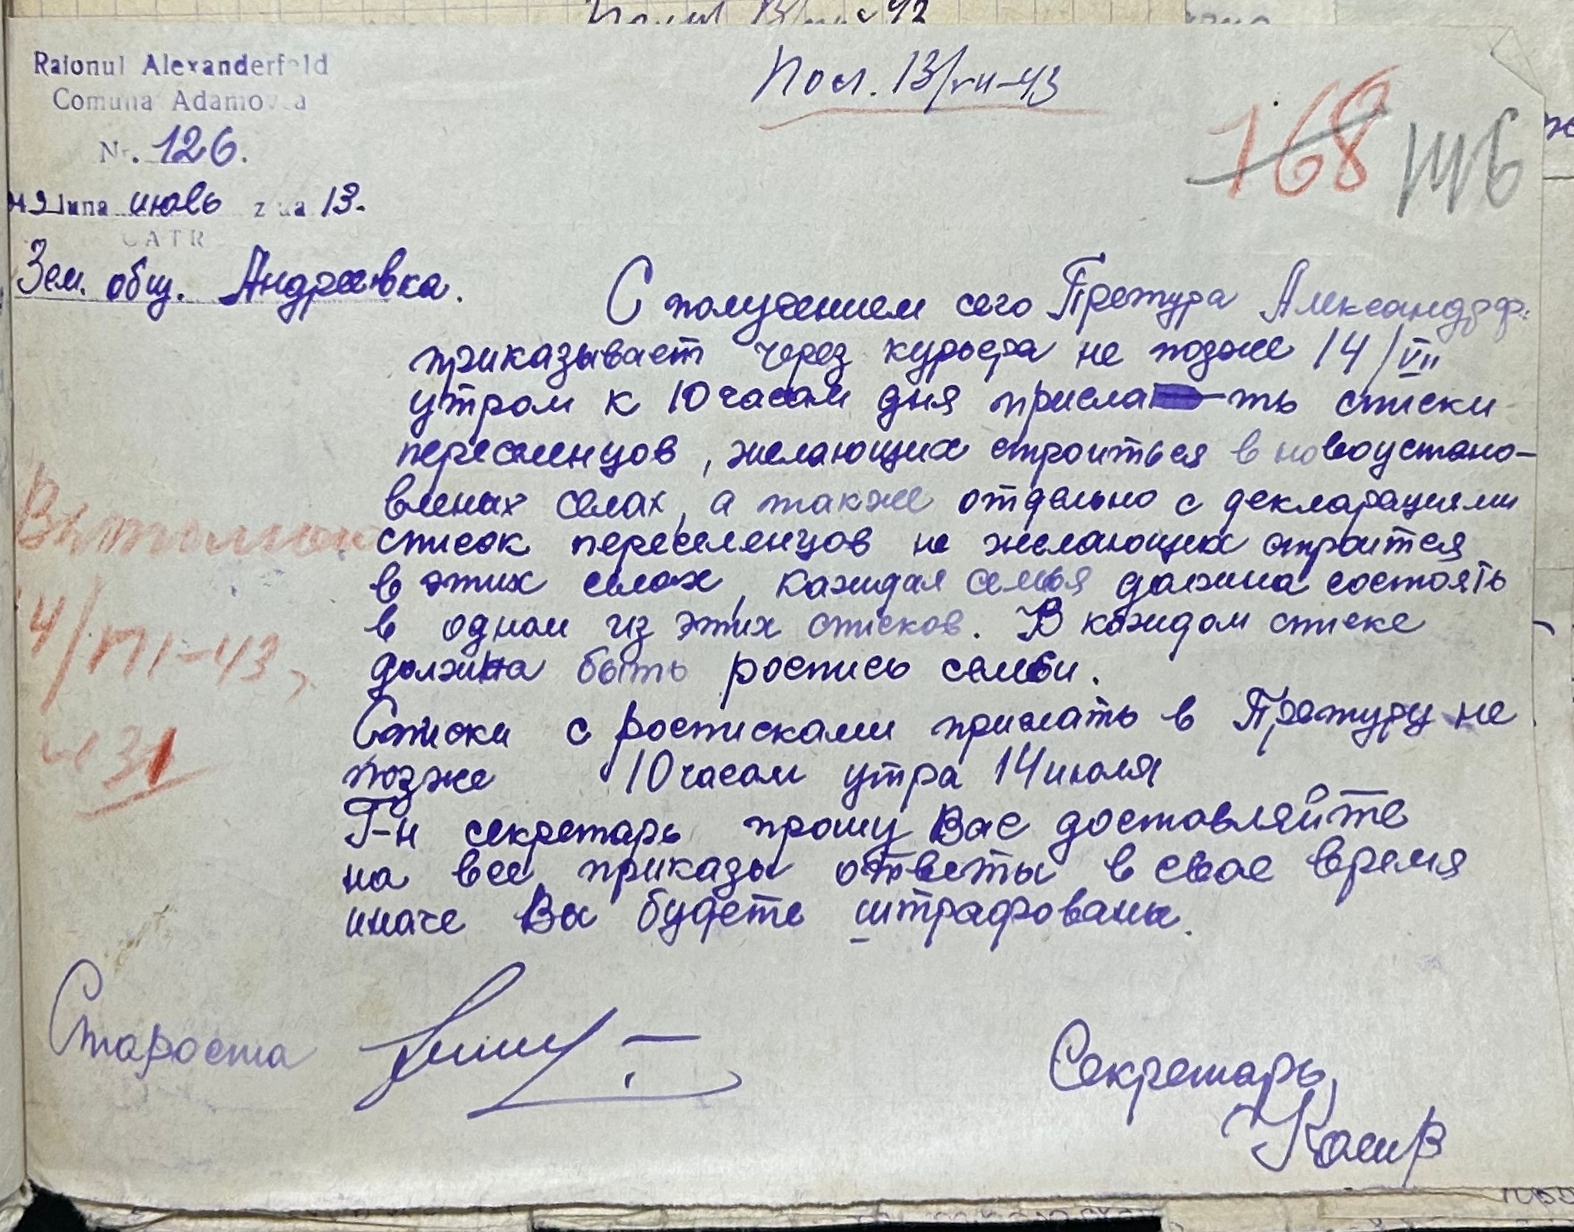 Raionul Alexanderfeld
Comuna Adamovca
Nr. 126.
luna июль ziua 13.
CATR
Зем. общ. Андреевка.
Пол. 13/VII-43
168
С получением сего Претура Александрф.
приказывает через курьера не позже 14/VII
утром к 10 часам дня присла-ть списки
переселенцов, желающих строиться в новоустано-
вленых селах, а также отдельно с декларациями
список переселенцов не желающих строится
в этих селах, каждая семья должна состоять
в одном из этих списков. В каждом списке
должна быть роспись семьи.
Списки с росписками прислать в Претуру не
позже 10 часам утра 14 июля
Г-н секретарь прошу Вас доставляйте
на все приказы ответы в свае время
иначе Вы будете штрафованы.
14/VII-43,
31
Староста
Секретарь